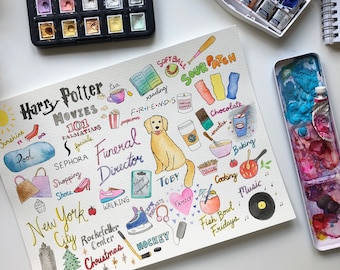 Harry Potter
MOVIES
101
DALMATIANS
Sunshine
Tea
reading
SOFTBALL
SOUR PATCH
F·R·I·E·N·D·S
Pool
SEPHORA
Funeral
Director
Chocolate
Shopping
Shoes
TOBY
Baking
WALKING
Cooking
Family
Music
New York
City
Rockefeller
Center
Christmas
HOCKEY
Fish Bowl
Fridays